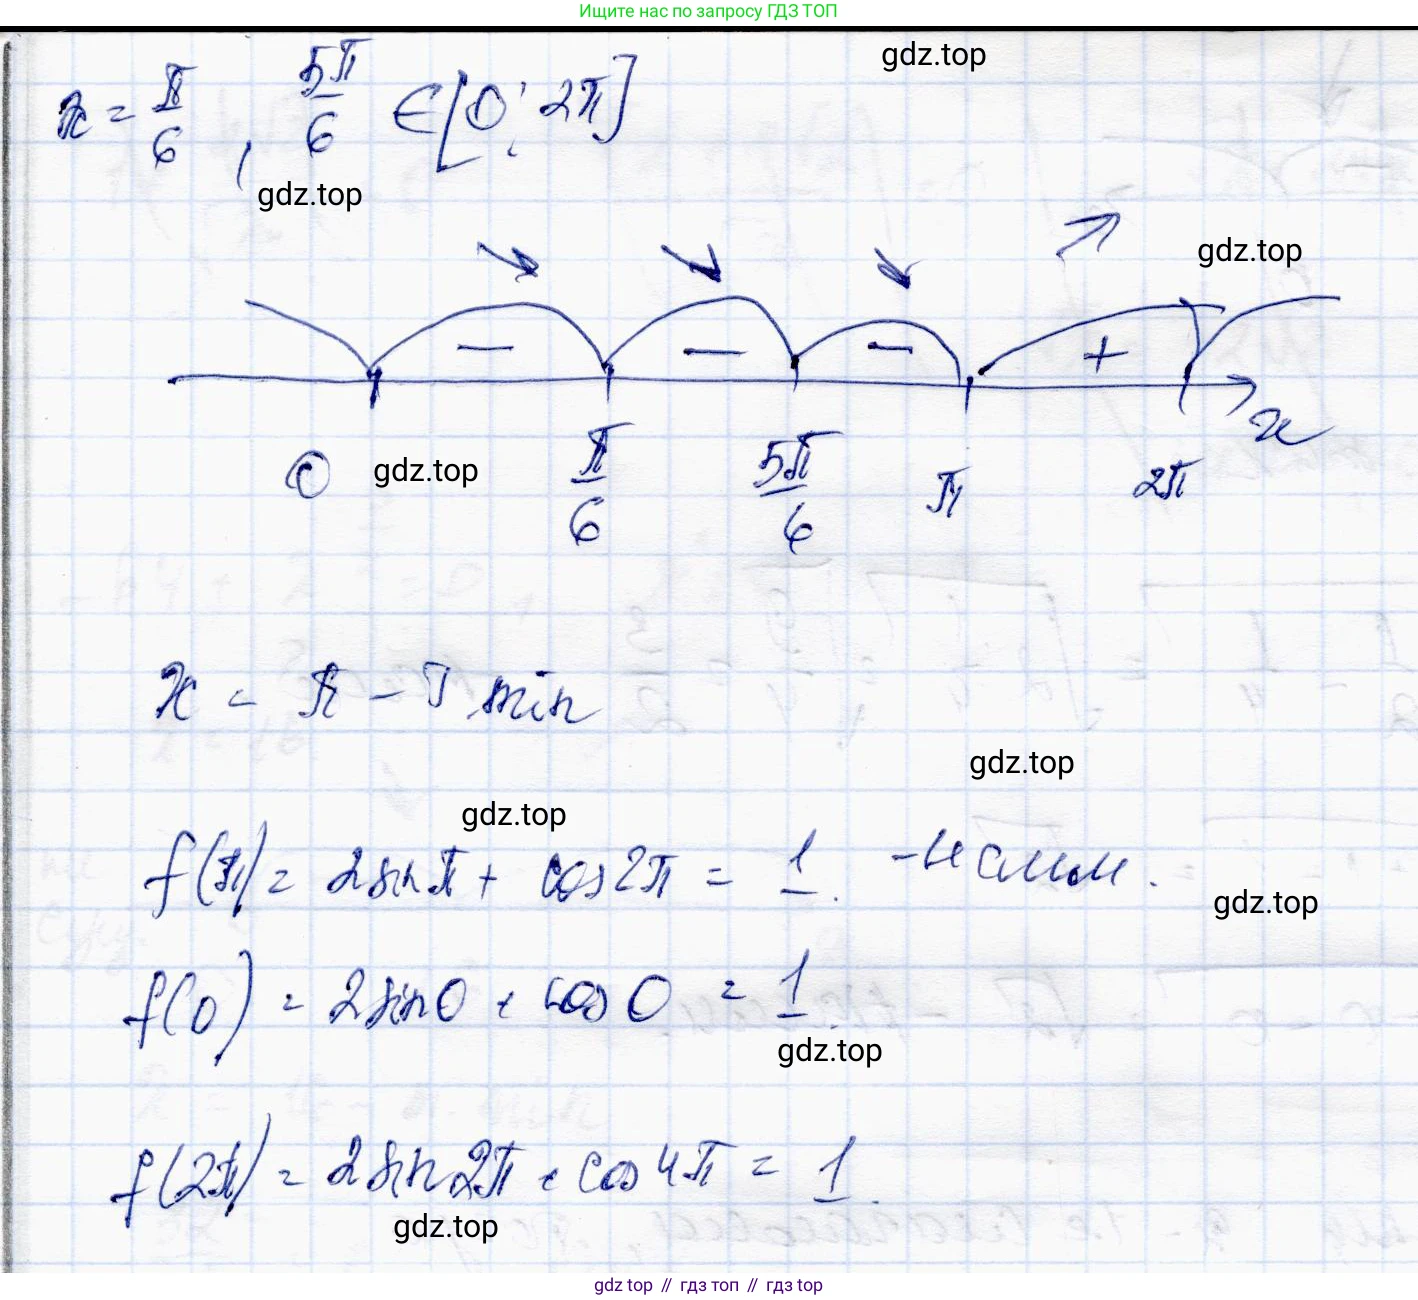 Ищите нас по запросу ГДЗ ТОП
gdz.top
x = π/6, 5π/6 ∈ [0; 2π]
gdz.top
gdz.top
− − − +
x
0 π/6 5π/6 π 2π
gdz.top
x = π − T min
gdz.top
gdz.top
f(π) = 2sinπ + cos2π = 1.
gdz.top
f(0) = 2sin0 + cos0 = 1.
gdz.top
f(2π) = 2sin2π + cos4π = 1.
gdz.top
gdz top // гдз топ // гдз top